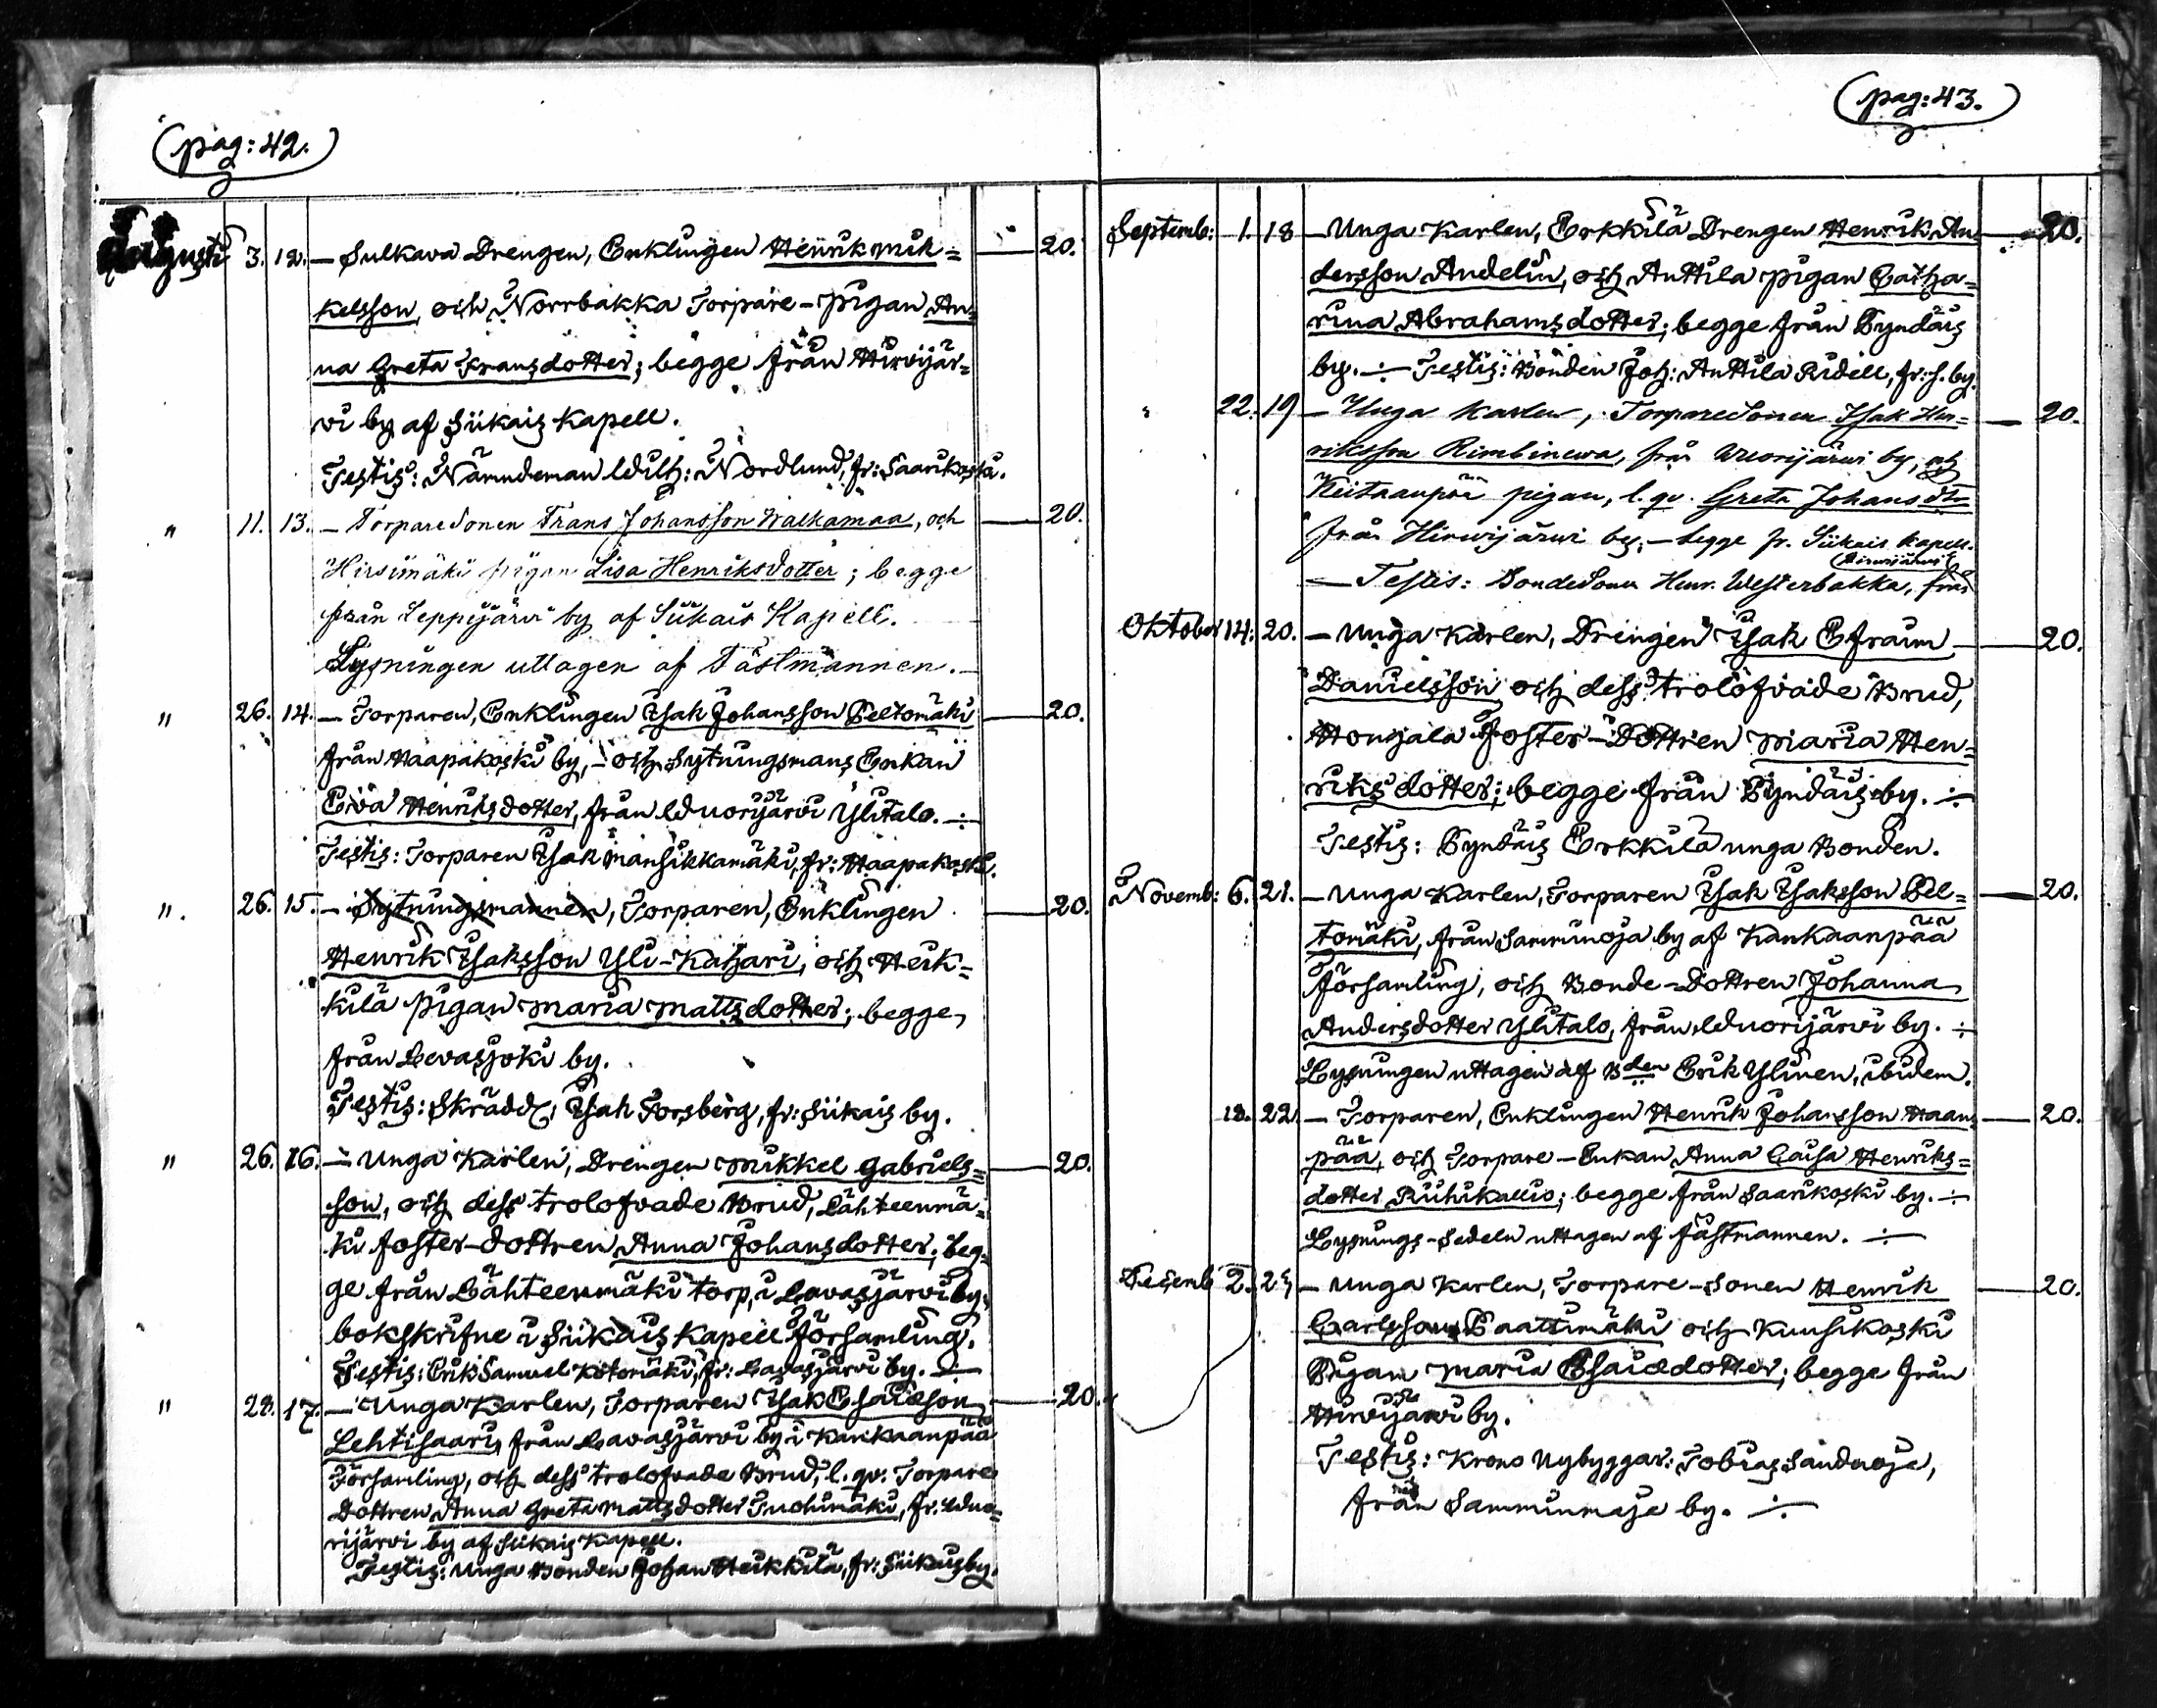 (pag: 42.)
Augusti 3. 12. — Sulkava Drengen, Enklingen Henrik Mik= — 20.
kelsson, och Norrbakka Torpare-pigan An=
na Greta Fransdotter; begge från Hirvijär=
vi by af Siikais Kapell.
Testis: Nämndeman Wilh: Nordlund, fr: Saarikoski.
" 11. 13. — Torparesonen Frans Johansson Walkamaa, och — 20.
Hirsimäki pigan Lisa Henriksdotter; begge
från Leppijärvi by af Siikais Kapell.
Lysningen uttagen af Fästmannen. —
" 26. 14. — Torparen, Enklingen Isak Johansson Peltomäki — 20.
från Haapakoski by, — och Sytningsmans Enkan
Eva Henriksdotter, från Wuorijärvi Ylitalo. ÷
Testis: Torparen Isak Mansikkamäki, fr: Haapakoski.
" 26. 15. — Sytningsmannen, Torparen, Enklingen — 20.
Henrik Isaksson Yli-Kahari, och Heik=
kilä pigan Maria Mattsdotter; begge
från Levasjoki by.
Testis: Skrädd: Isak Forsberg, fr: Siikais by.
" 26. 16. — Unga Karlen, Drengen Mikkel Gabriels= — 20.
son, och dess trolofvade Brud, Lähteenmä=
ki foster-dottren Anna Johansdotter; beg=
ge från Lähteenmäki torp, i Lavasjärvi by,
bokskrifne i Siikais Kapell Församling.
Testis: Erik Samuel Kotomäki, fr: Lavasjärvi by. ÷
" 28. 17. — Unga Karlen, Torparen Isak Esaiæson — 20.
Lehtisaari, från Lavasjärvi by i Kankaanpää
Församling, och dess trolofvade Brud, l. qv. Torpare
Dottren Anna Greta Mattsdotter Tuohimäki, fr. Wuo=
rijärvi by af Siikais Kapell.
Testis: Unga Bonden Johan Heikkilä, fr: Siikais by.
(pag: 43.)
Septemb: 1. 18 — Unga Karlen, Erkkilä Drengen Henrik An — 20.
dersson Andelin, och Anttila pigan Catha=
rina Abrahamsdotter; begge från Pyndäis
by. ÷ Testis: Bonden Joh: Anttila Ridell, fr: s. by.
" 22. 19 — Unga Karlen, Torparesonen Isak Hen= — 20.
riksson Rimbinewa, från Wuorijärwi by, och
Keitaanpää pigan, l. qv. Greta Johansdtr
från Hirwijärwi by; — begge fr. Siikais kapell.
— Testis: Bondesonen Henr. Westerbakka, från Hirwijärwi
Oktober 14. 20. — Unga Karlen, Drengen Isak Efraim — 20.
Danielsson och dess trolofvade Brud,
Honjala Foster-Dottren Maria Hen=
riksdotter; begge från Pyndäis by. ÷
Testis: Pyndäis Erkkilä unga Bonden.
Novemb: 6. 21. — Unga Karlen, Torparen Isak Isaksson Pel= — 20.
tomäki, från Samminoja by af Kankaanpää
Församling, och Bonde-Dottren Johanna
Andersdotter Ylitalo, från Wuorijärvi by. ÷
Lysningen uttagen af Bden Erik Ylinen, ibidem.
18. 22. — Torparen, Enklingen Henrik Johansson Haan — 20.
pää, och Torpare-Enkan Anna Caisa Henriks=
dotter Riihikallio; begge från Saarikoski by. ÷
Lysnings-Sedeln uttagen af fästmannen. ÷
Decemb 2. 23 — Unga Karlen, Torpare-Sonen Henrik — 20.
Carlsson Paattimäki och Kuusikoski
Pigan Maria Esaiædotter; begge från
Hirvijärvi by.
Testis: Krono Nybyggar: Tobias Sandnoja,
från Samminmaja by. ÷